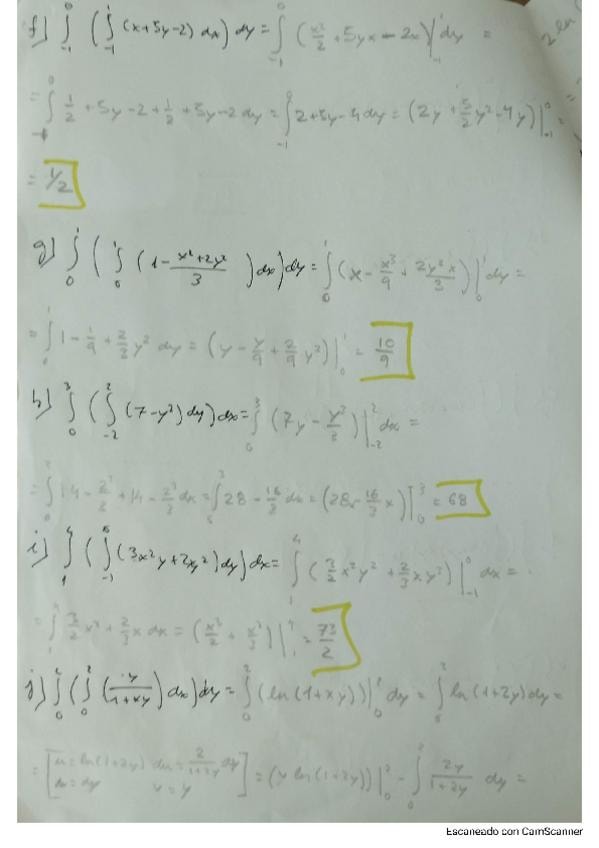 f) ∫_{-1}^{0} ( ∫_{-1}^{1} (x+5y-2) dx ) dy = ∫_{-1}^{0} (x²/2 + 5yx - 2x) |_{-1}^{1} dy =
= ∫^{0} 1/2 + 5y - 2 + 1/2 + 5y - 2 dy = ∫_{-1}^{0} 2+5y-4 dy = (2y + 5/2 y² - 4y) |_{-1}^{0} =
= 1/2
g) ∫_{0}^{1} ( ∫_{0}^{1} (1 - (x²+2y²)/3 ) dx ) dy = ∫_{0}^{1} (x - x³/9 + 2y²x/3) |_{0}^{1} dy =
= ∫_{0}^{1} 1 - 1/9 + 2/3 y² dy = (y - y/9 + 2/9 y³) |_{0}^{1} = 10/9
h) ∫_{0}^{3} ( ∫_{-2}^{2} (7-y²) dy ) dx = ∫_{0}^{3} (7y - y³/3) |_{-2}^{2} dx =
= ∫ 14 - 2³/3 + 14 - 2³/3 dx = ∫^{3} 28 - 16/3 dx = (28x - 16/3 x) |_{0}^{3} = 68
i) ∫_{1}^{4} ( ∫_{-1}^{0} (3x²y + 2xy²) dy ) dx = ∫_{1}^{4} (3/2 x²y² + 2/3 xy³) |_{-1}^{0} dx =
= ∫_{1} 3/2 x² + 2/3 x dx = (x³/2 + x²/3) |_{1}^{4} = 73/2
j) ∫_{0}^{2} ( ∫_{0}^{2} (y/(1+xy)) dx ) dy = ∫_{0}^{2} (ln(1+xy)) |_{0}^{2} dy = ∫_{0}^{2} ln(1+2y) dy =
= [ u = ln(1+2y) du = 2/(1+2y) dy
dv = dy v = y ] = (y ln(1+2y)) |_{0}^{2} - ∫_{0}^{2} 2y/(1+2y) dy =
Escaneado con CamScanner